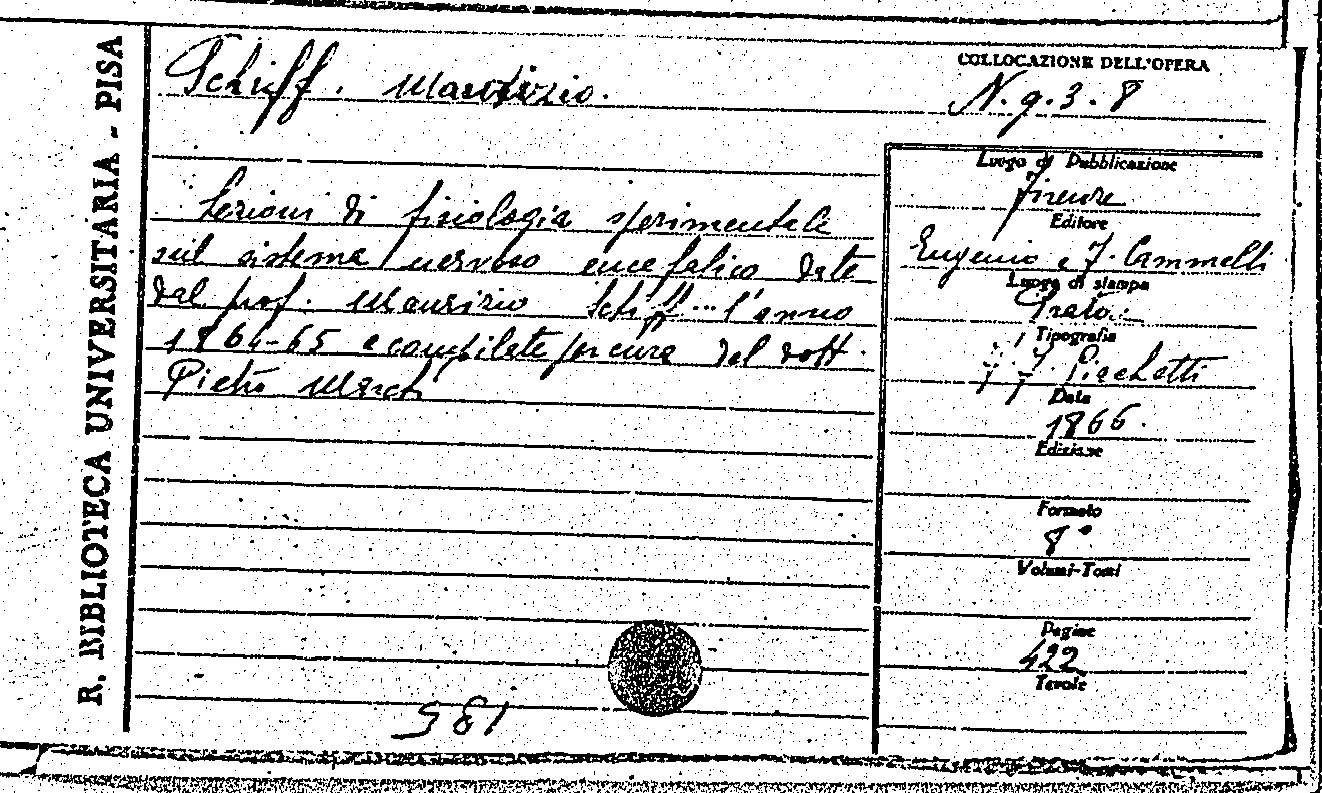 R. BIBLIOTECA UNIVERSITARIA - PISA
Schiff. Maurizio.
COLLOCAZIONE DELL'OPERA
N. g. 3. 8
Lezioni di fisiologia sperimentale
sul sistema nervoso encefalico date
dal prof. Maurizio Schiff ... l'anno
1864-65 e compilate per cura del dott.
Pietro March
Luogo di Pubblicazione
Firenze
Editore
Eugenio e F. Cammelli
Luogo di stampa
Prato
Tipografia
F. Giachetti
Data
1866.
Edizione
Formato
8°
Volumi-Tomi
Pagine
422
Tavole
581